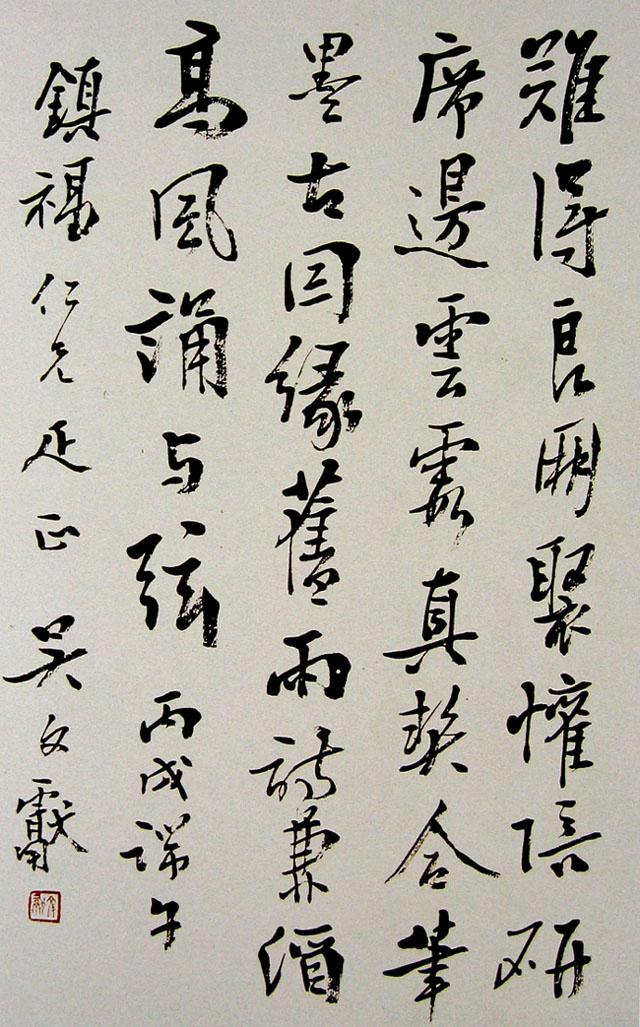 難得良朋聚懽陪研
席邊雲霞真契合筆
墨古因緣舊雨詩兼酒
高風誦与弦 丙戌端午
鎮福仁兄疋正 吳文獻